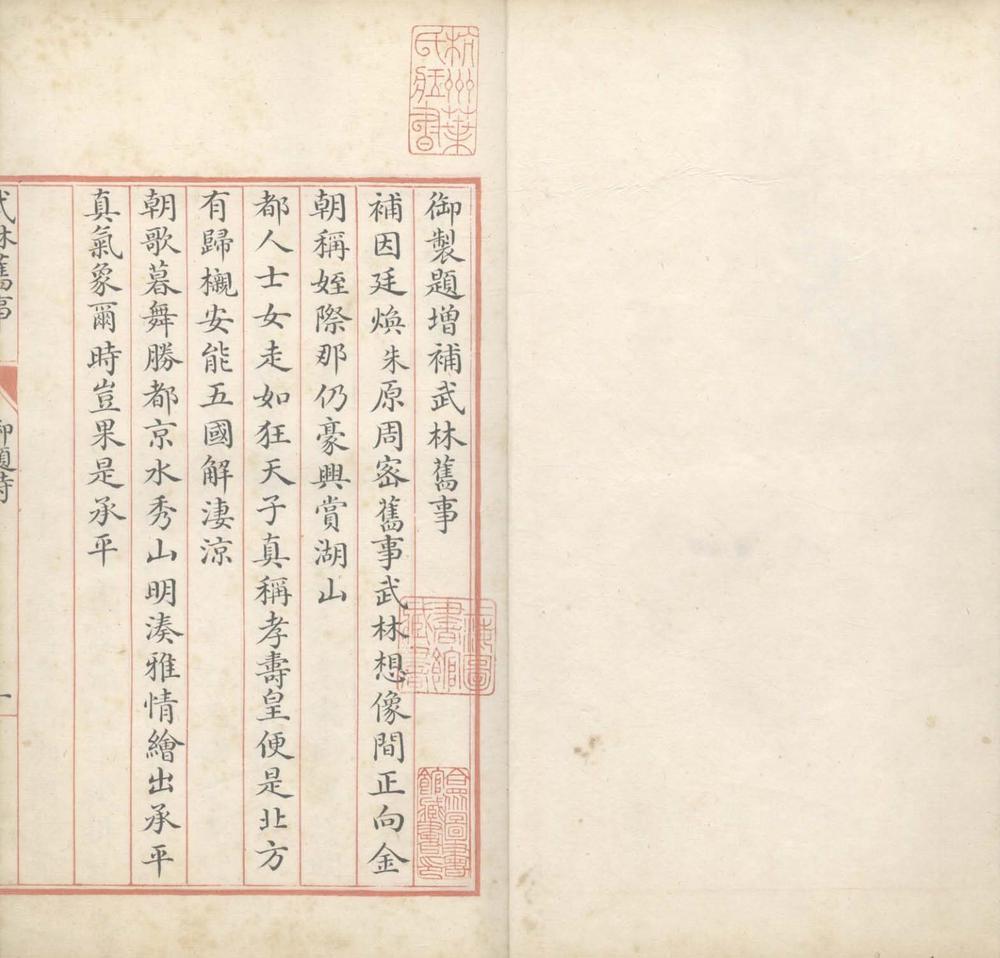 杭州葉氏藏書
御製題增補武林舊事
補因廷煥朱原周宻舊事武林想像間正向金
朝稱姪際那仍豪興賞湖山
都人士女走如狂天子真稱孝壽皇便是北方
有歸櫬安能五國解淒涼
朝歌暮舞勝都京水秀山明湊雅情繪出承平
真氣象爾時豈果是承平
上海圖書館藏書
合眾圖書館藏書印
武林舊事
御題詩
一